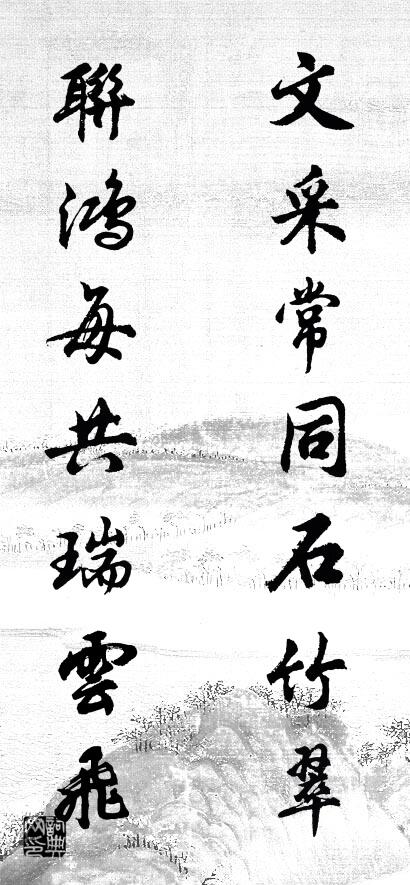 文采常同石竹翠
聯鴻每共瑞雲飛
詞典網